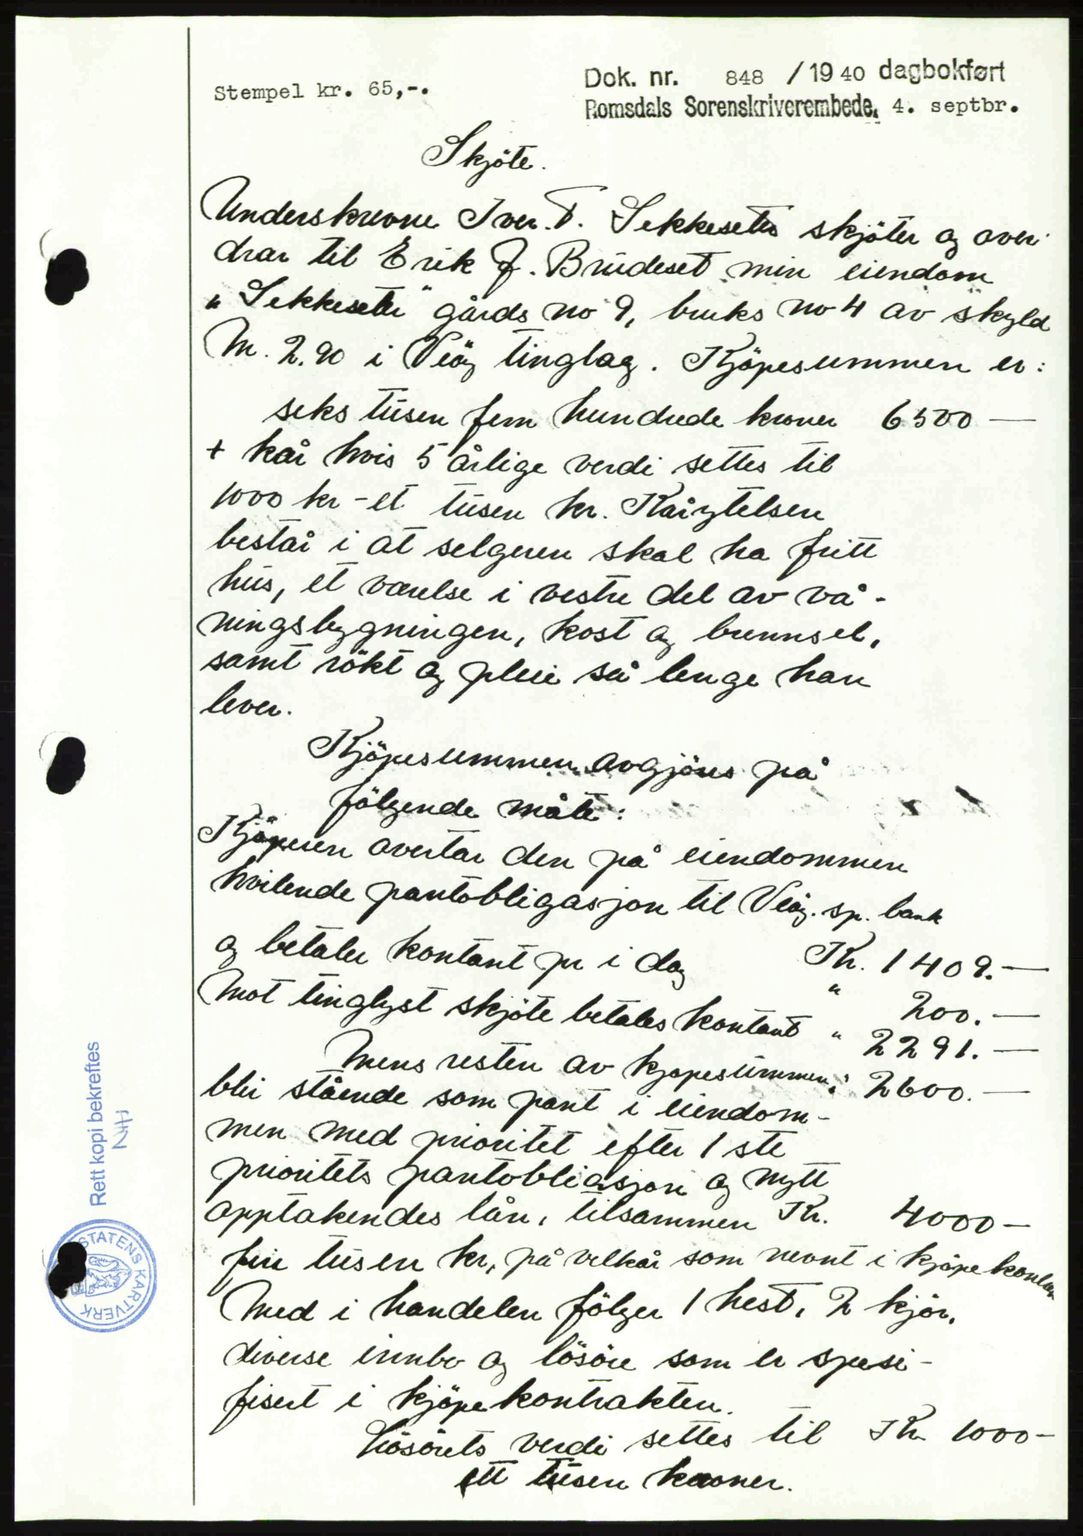 Stempel kr. 65,-.
Dok. nr. 848 / 1940 dagbokført
Romsdals Sorenskriverembede, 4. septbr.
Skjöte.
Underskrevne Iver. T. Sekkeseter skjöter og over-
drar til Erik J. Brudeset min eiendom
"Sekkeseter" gårds no 9, bruks no 4 av skyld
M. 2.90 i Veöy tinglag. Kjöpesummen er:
seks tusen fem hundrede kroner 6500 —
+ kår hvis 5 årlige verdi settes til
1000 kr - et tusen kr. Kårytelsen
består i at selgeren skal ha fritt
hus, et værelse i vestre del av vå-
ningsbygningen, kost og brennsel,
samt rökt og pleie så lenge han
lever.
Kjöpesummen avgjöres på
fölgende måte:
Kjöperen overtar den på eiendommen
hvilende pantobligasjon til Veöy. sp. bank
Kr. 1409.—
og betaler kontant pr i dag " 200.—
Mot tinglyst skjöte betales kontant " 2291.—
Mens resten av kjöpesummen: 2600.—
blir stående som pant i eiendom-
men med prioritet efter 1 ste
prioritets pantobligasjon og nytt
opptakendes lån, tilsammen Kr. 4000—
fire tusen kr, på vilkår som nevnt i kjöpekontr
Med i handelen fölger 1 hest, 2 kjör,
diverse innbo og lösöre som er spesi-
fisert i kjöpekontrakten.
Lösörets verdi settes til Kr 1000—
ett tusen kroner.
Rett kopi bekreftes
NH
STATENS KARTVERK